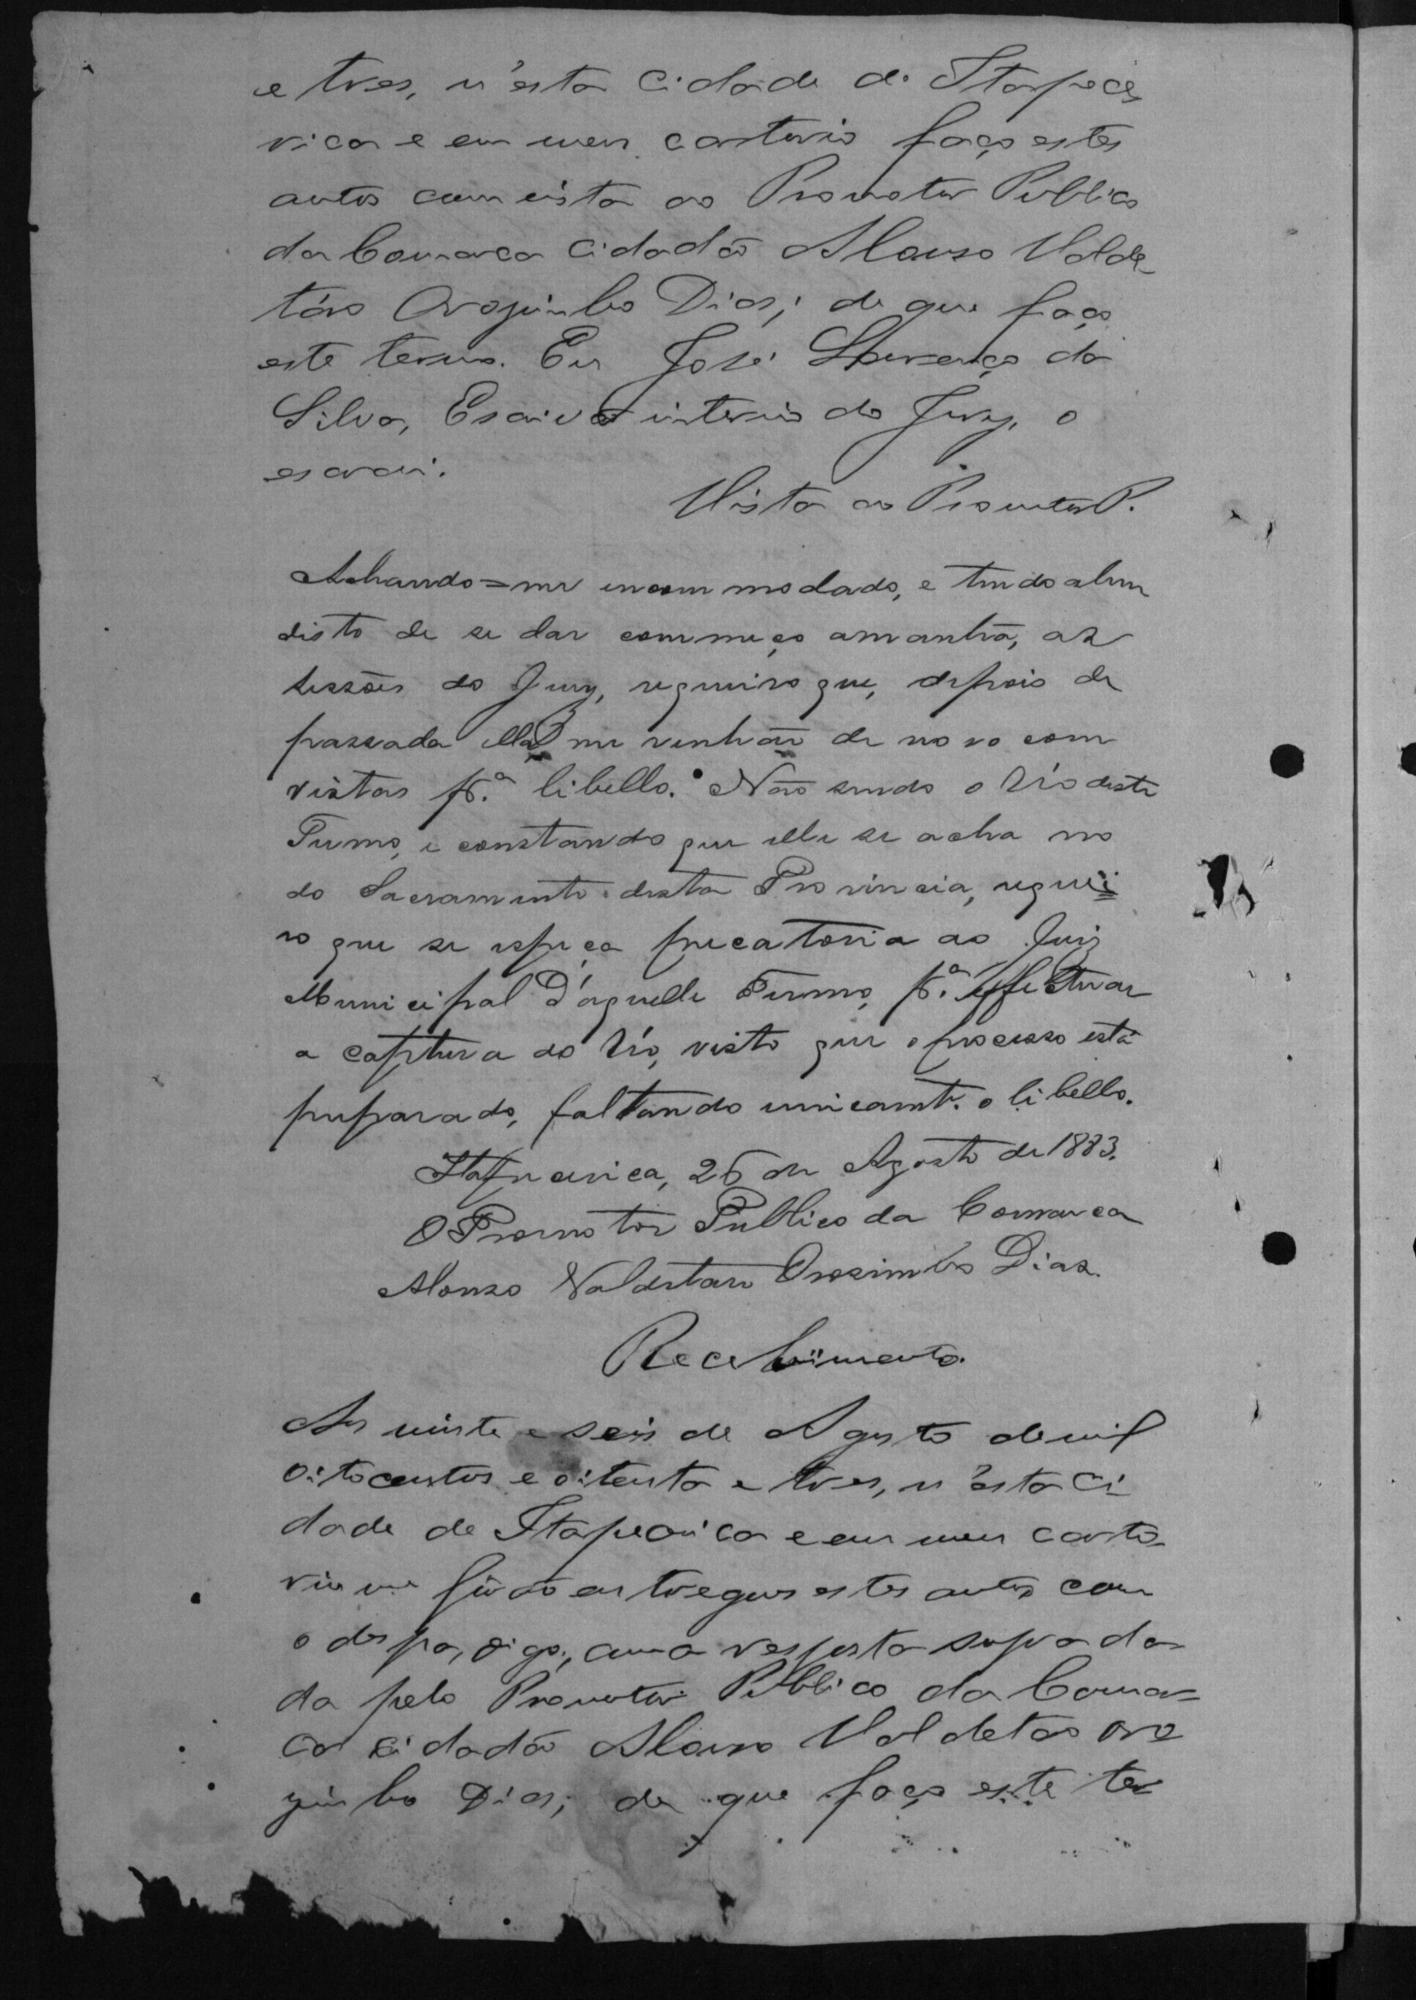 e tres, n'esta cidade de Itapece
rica e em meu cartorio faço estes
autos com vista ao Promotor Publico
da Comarca cidadão Alonso Valde
táro Orozimbo Dias; de que faço
este termo. Eu José Lourenço da
Silva, Escivão interino do Jury, o
escrevi.
Vista ao Promotor P.
Achando=me incommodado, e tendo alem
disto de se dar commeço amanhã, as
sessões do Jury, requeiro que, depois de
passada ella me venhão de novo com
vistas p.ª libello. Não sendo o réo deste
Termo, e constando que elle se acha no
do Sacramento desta Provincia, requei
ro que se espeça precatoria ao Juiz
Municipal d'aquelle Termo, p.ª effectuar
a captura do réo, visto que o processo está
preparado, faltando unicamt.e o libello.
Itapecerica, 26 de Agosto de 1883.
O Promotor Publico da Comarca
Alonso Valdetaro Orosimbo Dias.
Recebimento.
Aos vinte e seis de Agosto de mil
oitocentos e oitenta e tres, n'esta ci
dade de Itapecerica e em meu carto-
rio me forão entregues estes autos com
o despa, digo, com a resposta supra da
da pelo Promotor Publico da Comar=
ca cidadão Alonso Valdetaro Oro
zimbo Dias; de que faço este ter